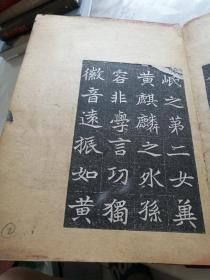 岷之第二女
黄麒麟之外孫
容非學言功獨
徽音遠振如黄